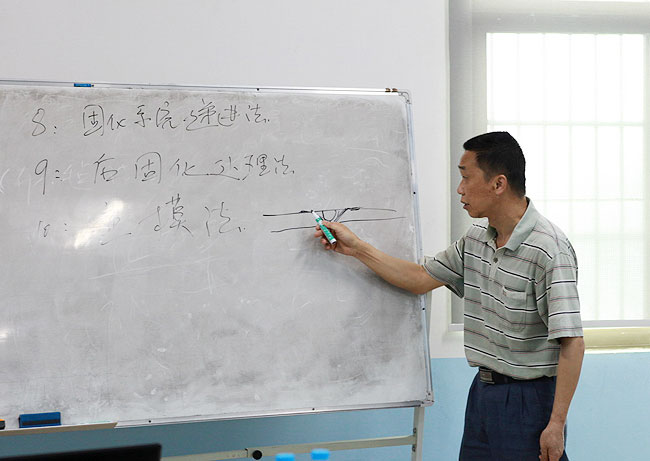 8: 固化系统递进法.
9: 后固化处理法.
10: 模法.